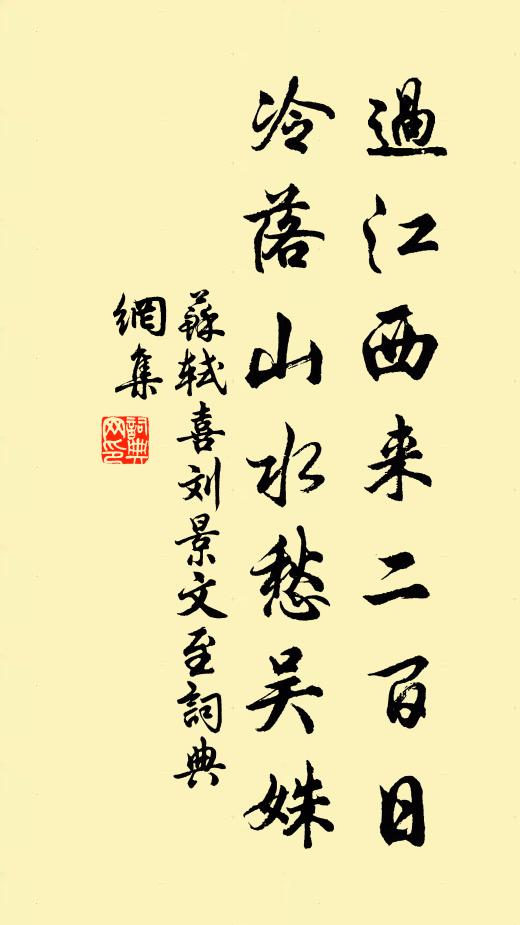 過江西来二百日
冷落山水愁吴姝
蘇軾喜刘景文至詞典
網集
詞典
网印